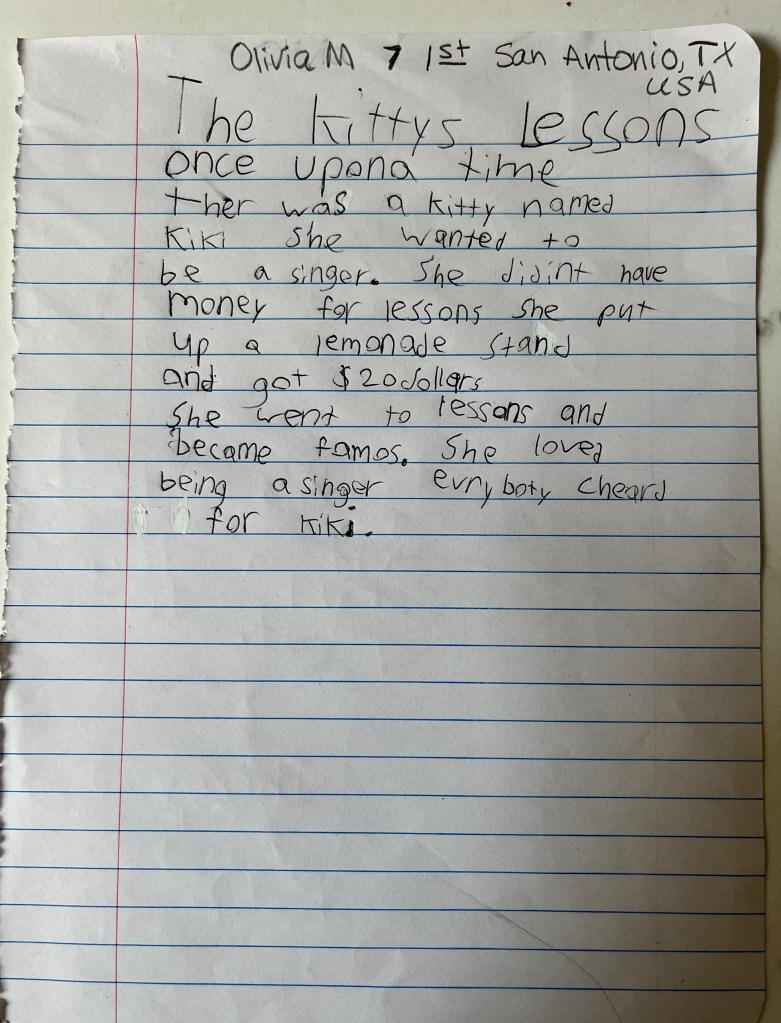 Olivia M 7 1st San Antonio, TX
USA
The kittys lessons
once upona time
ther was a kitty named
Kiki she wanted to
be a singer. She didint have
money for lessons she put
up a lemonade stand
and got $20dollars
She went to lessons and
became famos. She loved
being a singer evryboty cheard
for Kiki.